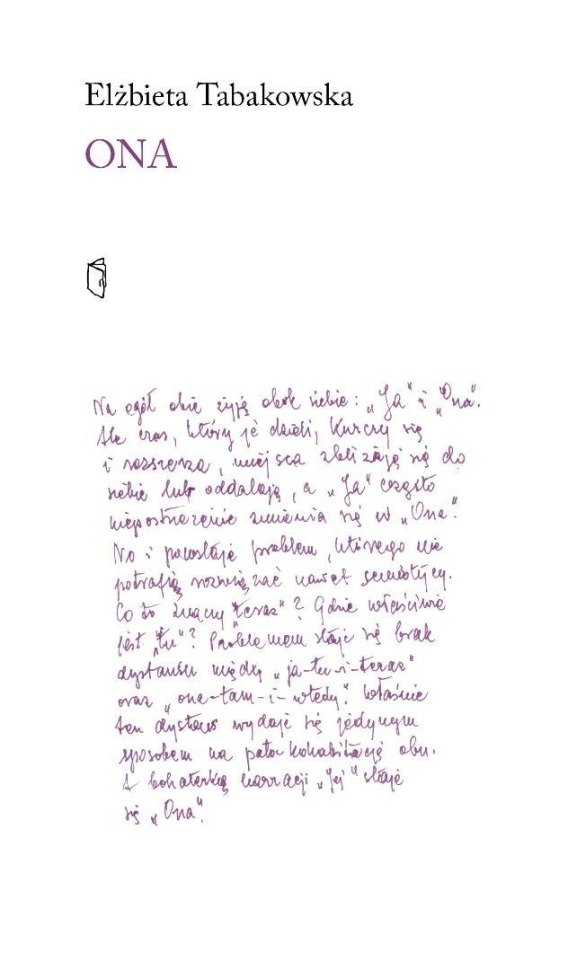 Elżbieta Tabakowska
ONA
Na ogół obie żyją obok siebie: „Ja" i „Ona".
Ale czas, który je dzieli, kurczy się
i rozszerza, miejsca zbliżają się do
siebie lub oddalają, a „Ja" często
niepostrzeżenie zmienia się w „Ona".
No i pozostaje problem, którego nie
potrafią rozwiązać nawet semiotycy.
Co to znaczy „teraz"? Gdzie właściwie
jest „tu"? Problemem staje się brak
dystansu między „ja-tu-i-teraz"
oraz „ona-tam-i-wtedy". Właśnie
ten dystans wydaje się jedynym
sposobem na kohabitację obu.
A bohaterką narracji staje
się „Ona".